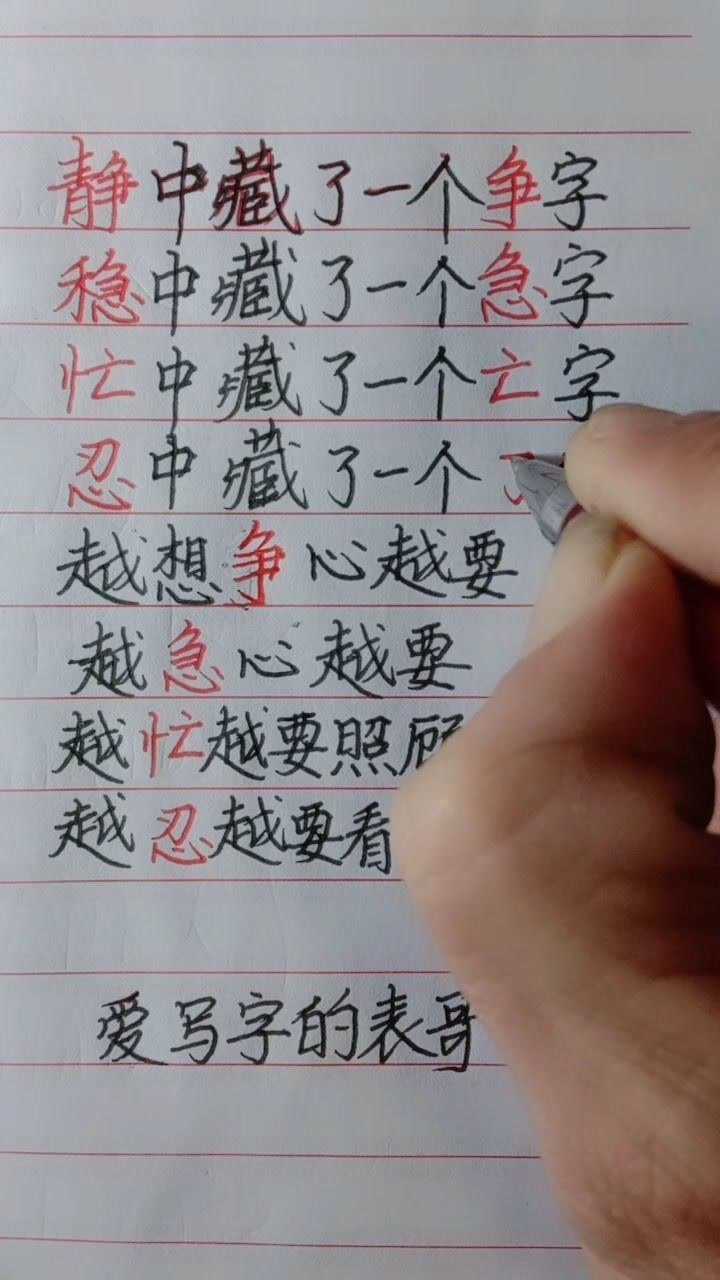 静中藏了一个争字
稳中藏了一个急字
忙中藏了一个亡字
忍中藏了一个
越想争心越要
越急心越要
越忙越要照顾
越忍越要看
爱写字的表哥